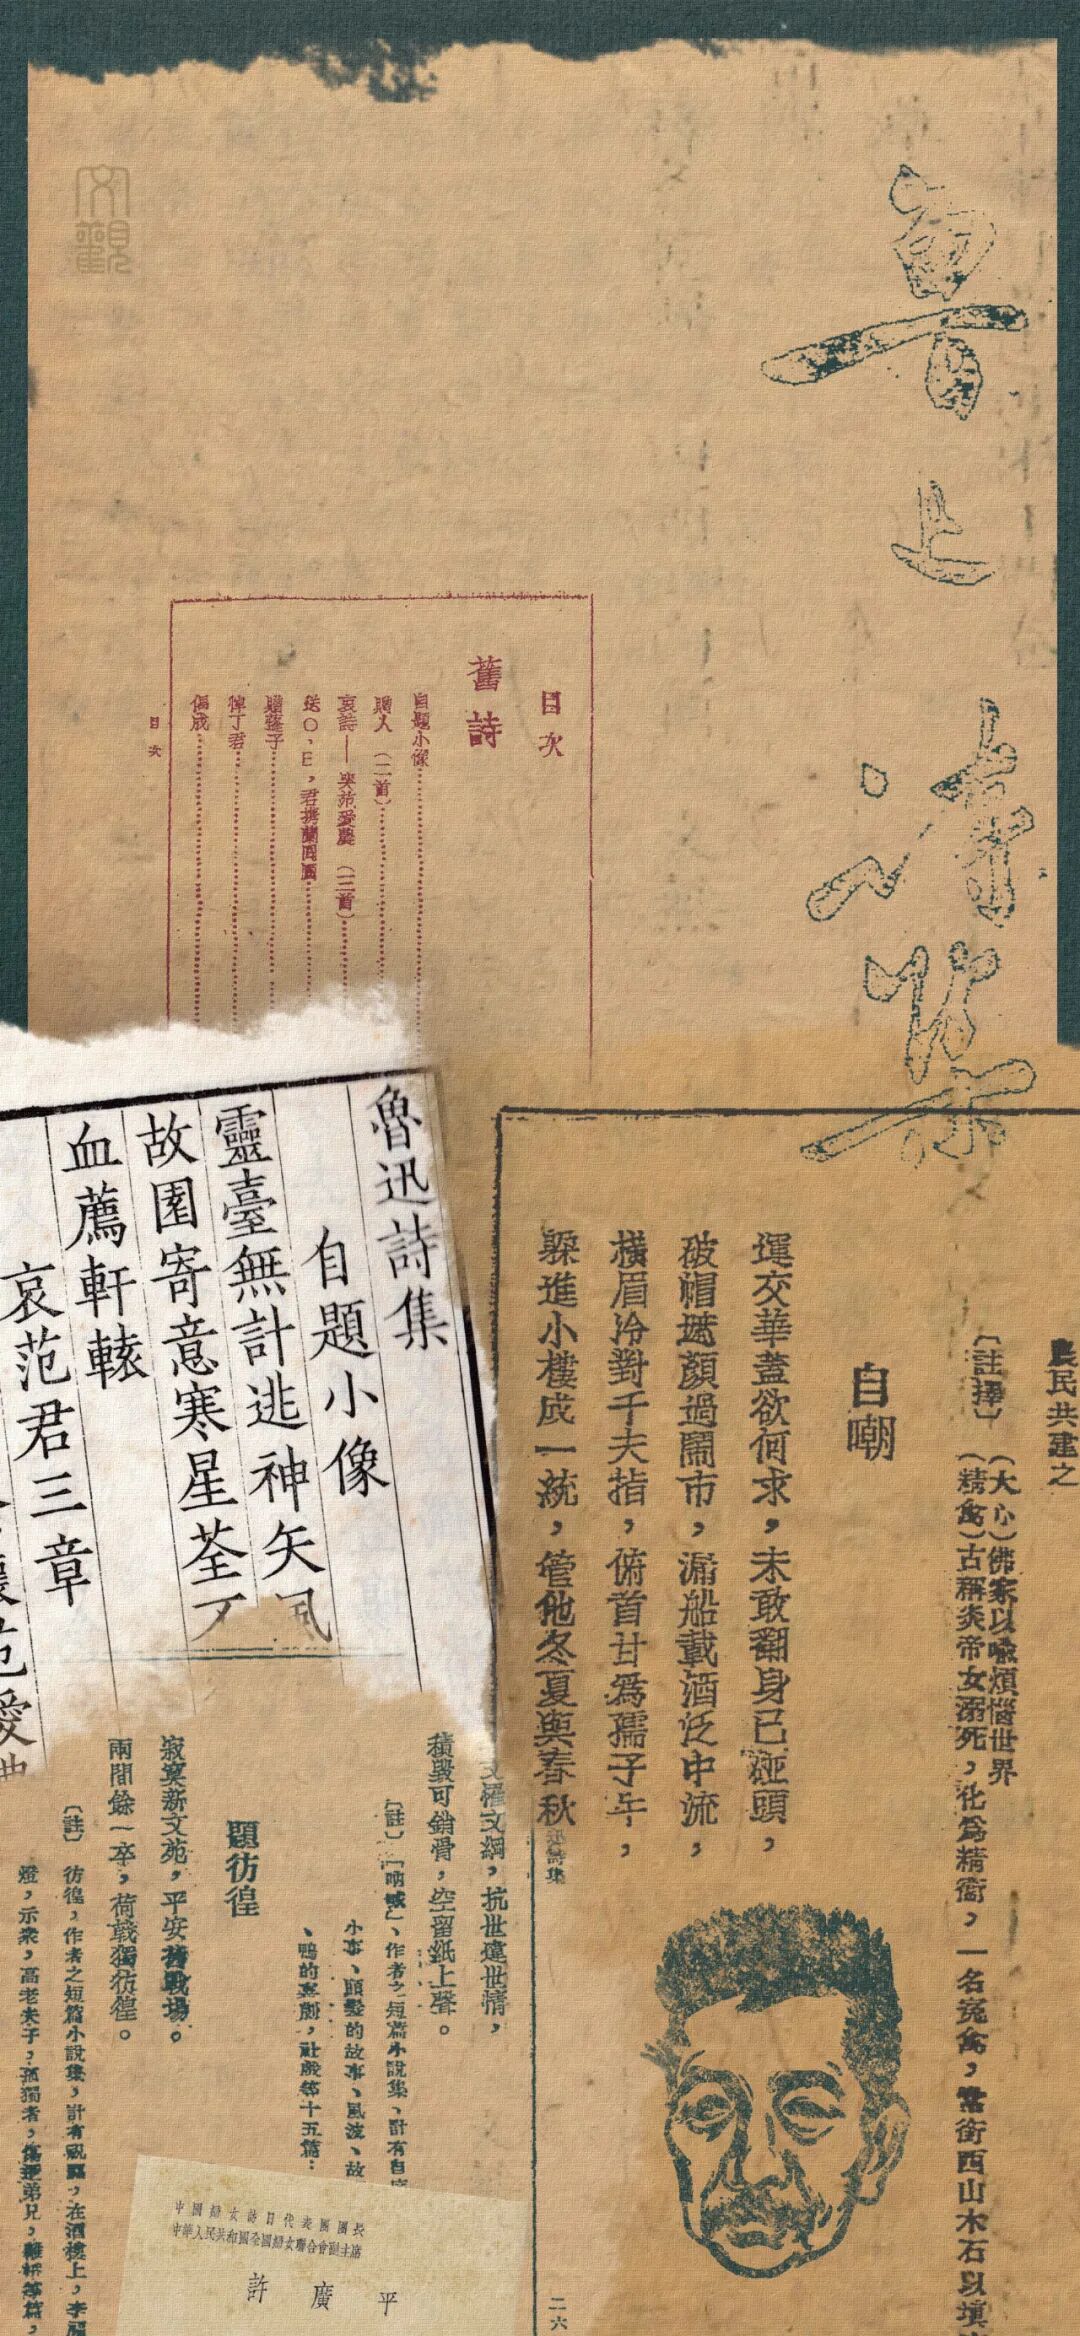 文觀
魯迅詩集
目次
舊詩
自題小像
贈人（二首）
哀詩——與范愛農（三首）
送O，E，君携蘭囘國
贈蓬子
悼丁君
目次
魯迅詩集
自題小像
靈臺無計逃神矢風
故園寄意寒星荃不
血薦軒轅
哀范君三章
農民共建之
〔註釋〕（大心）佛家以喻煩惱世界
（精禽）古稱炎帝女溺死，化為精衛，一名冤禽，常銜西山木石以填
自嘲
運交華蓋欲何求，未敢翻身已碰頭，
破帽遮顏過鬧市，漏船載酒泛中流，
橫眉冷對千夫指，俯首甘為孺子牛，
躲進小樓成一統，管他冬夏與春秋
二六
文羅文網，抗世違世情，
積毀可銷骨，空留紙上聲。
〔註〕〔吶喊〕、作者之短篇小說集、計有自序
小事、頭髮的故事、風波、故
、鴨的喜劇，社戲等十五篇：
題彷徨
寂寞新文苑，平安舊戰場。
兩間餘一卒，荷戟獨彷徨。
〔註〕彷徨，作者之短篇小說集，計有祝福，在酒樓上，幸福
燈，示衆，高老夫子，孤獨者，傷逝弟兄，離婚等篇，
中國婦女訪日代表團團長
中華人民共和國全國婦女聯合會副主席
許廣平